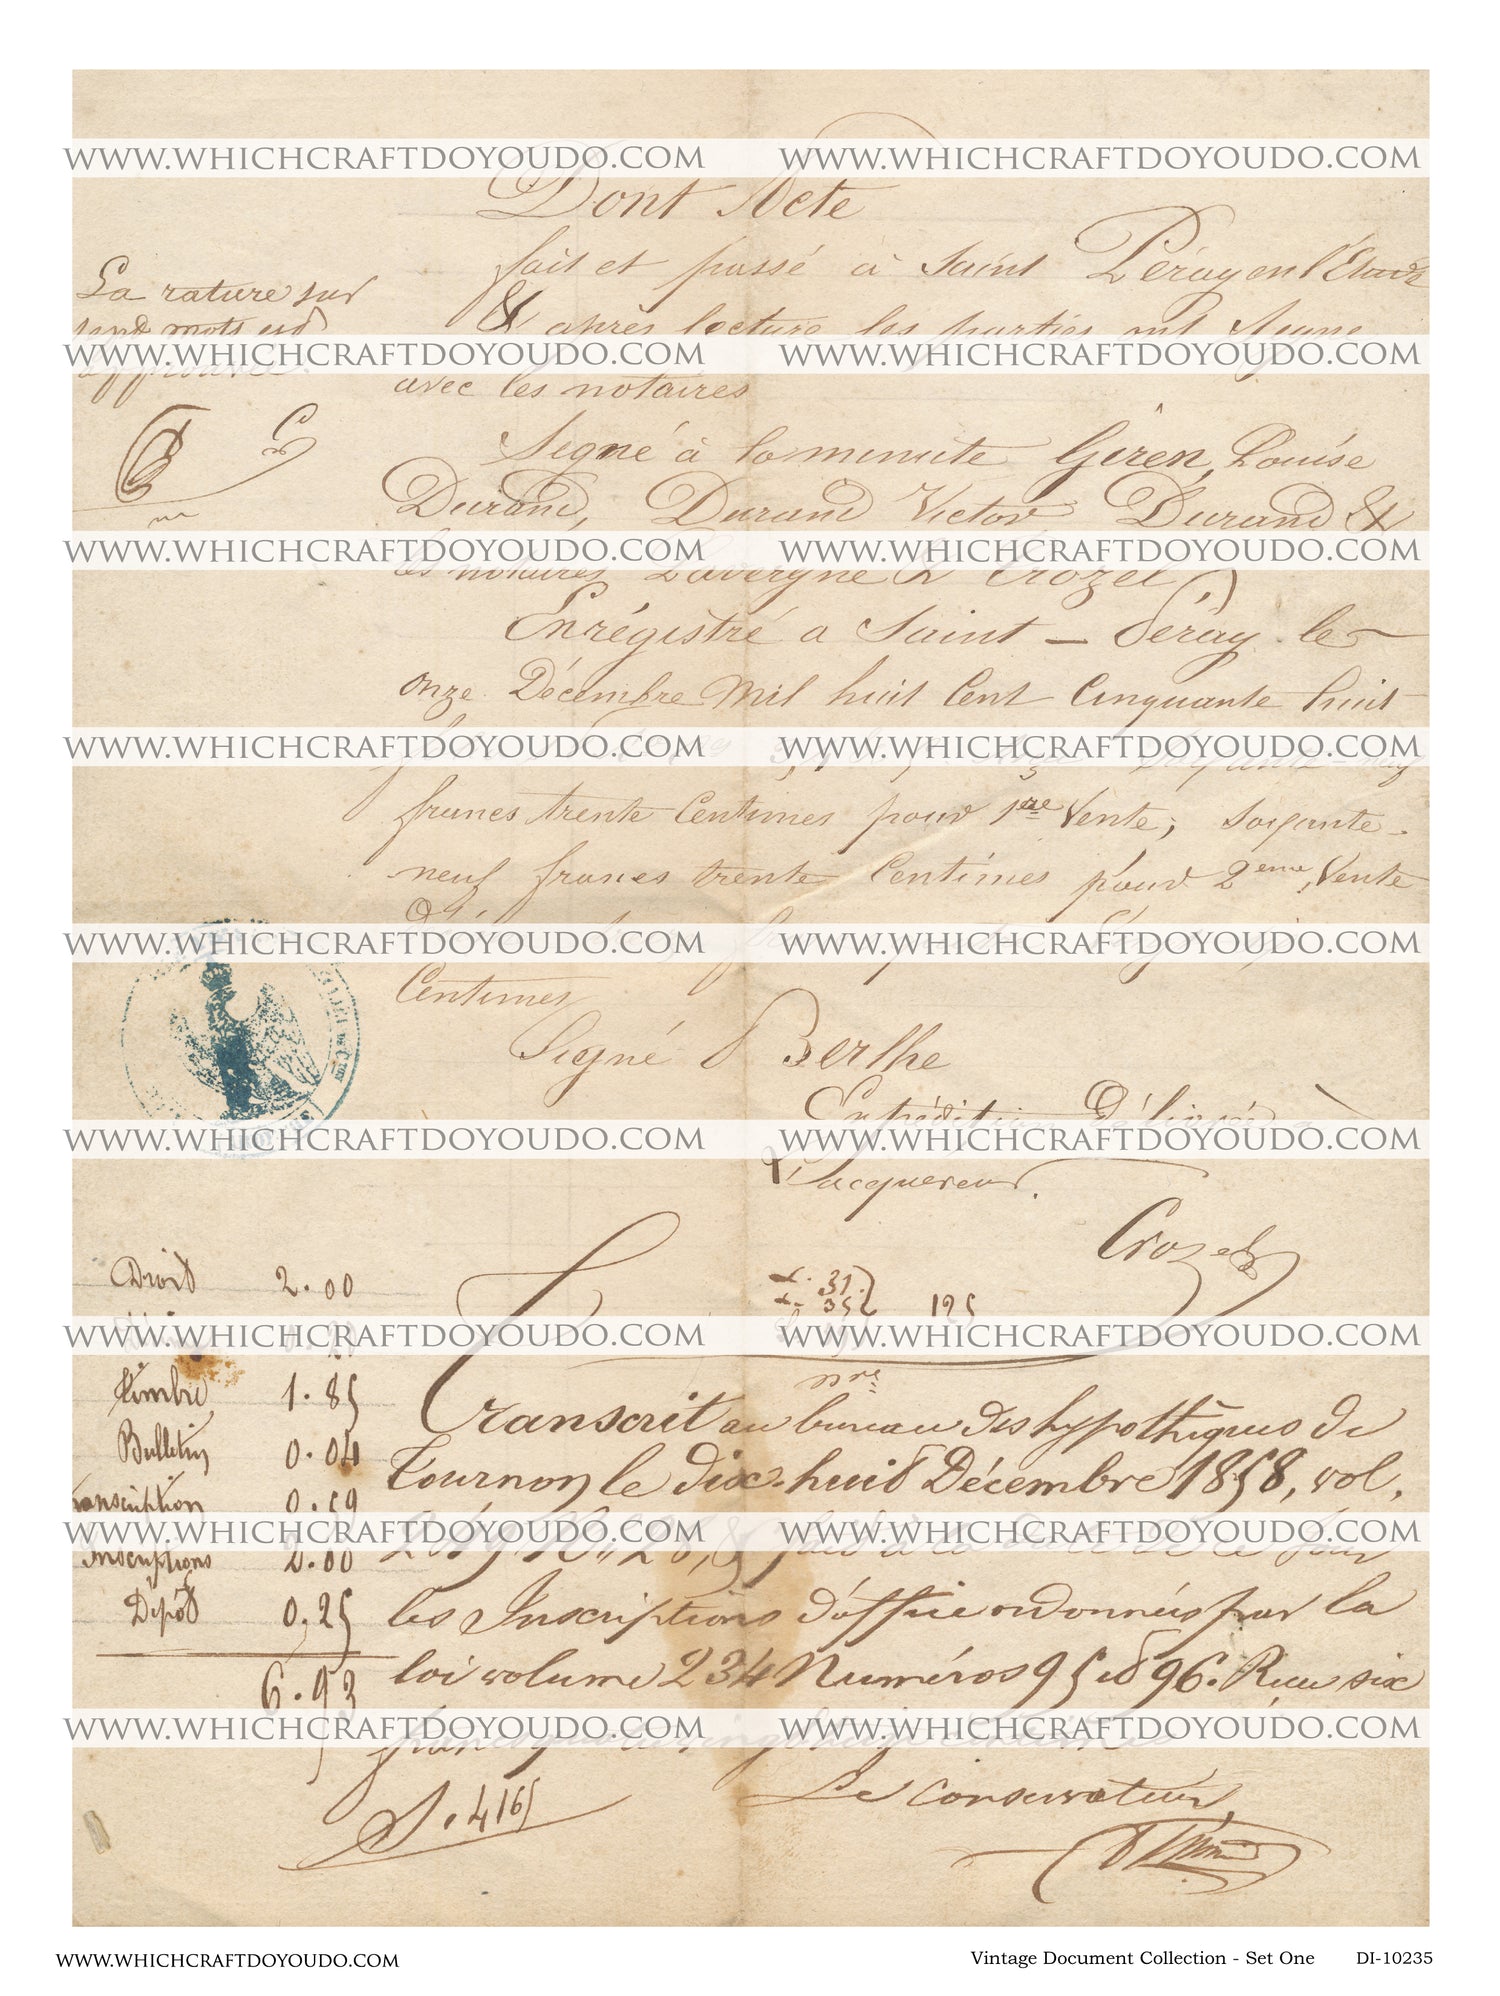 WWW.WHICHCRAFTDOYOUDO.COM WWW.WHICHCRAFTDOYOUDO.COM
Dont Acte
fait et passé à Saint Péray en l'Etude
& après lecture les parties ont signé
WWW.WHICHCRAFTDOYOUDO.COM WWW.WHICHCRAFTDOYOUDO.COM
avec les notaires
La rature sur
sept mots est
approuvée.
Signé à la minute Giren, Louise
Durand, Durand Victor Durand &
WWW.WHICHCRAFTDOYOUDO.COM WWW.WHICHCRAFTDOYOUDO.COM
les notaires Lavergne & Crozel
Enrégistré a Saint-Péray le
onze Décembre Mil huit Cent Cinquante huit
WWW.WHICHCRAFTDOYOUDO.COM WWW.WHICHCRAFTDOYOUDO.COM
francs trente Centimes pour 1ere Vente; Soixante-
neuf francs trente Centimes pour 2eme Vente
WWW.WHICHCRAFTDOYOUDO.COM WWW.WHICHCRAFTDOYOUDO.COM
Centimes
Signé Berthe
Expédition Délivrée à
WWW.WHICHCRAFTDOYOUDO.COM WWW.WHICHCRAFTDOYOUDO.COM
L'acquereur.
Crozel
31
35 195
WWW.WHICHCRAFTDOYOUDO.COM WWW.WHICHCRAFTDOYOUDO.COM
Droit 2.00
Timbre 1.85
Bulletin 0.04
Transcription 0.59
Inscriptions 2.00
Dépôt 0.25
6.93
Transcrit au bureau des hypothèques de
Tournon le dix-huit Décembre 1858, vol.
WWW.WHICHCRAFTDOYOUDO.COM WWW.WHICHCRAFTDOYOUDO.COM
les Inscriptions d'office ordonnées par la
loi volume 234 Numéros 95 et 96. Reçu six
WWW.WHICHCRAFTDOYOUDO.COM WWW.WHICHCRAFTDOYOUDO.COM
francs quatre vingt treize centimes
Le Conservateur,
S. 4165
WWW.WHICHCRAFTDOYOUDO.COM Vintage Document Collection - Set One DI-10235